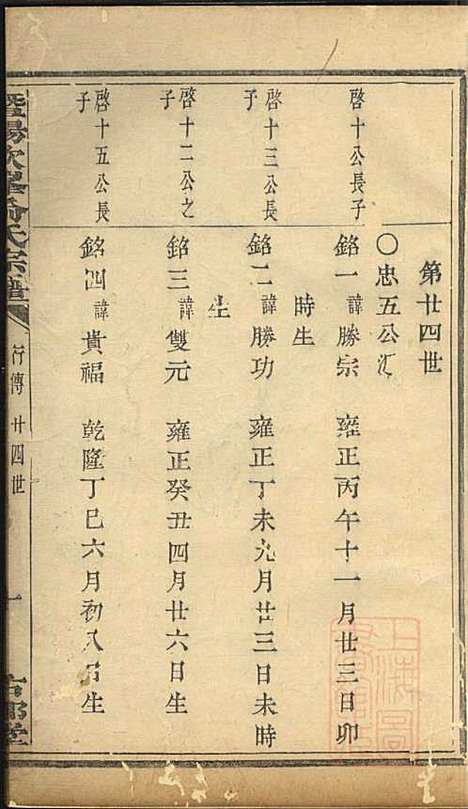 第廿四世
〇忠五公汇
啓十公長子
銘一 諱勝宗 雍正丙午十一月廿三日卯
時生
啓十三公長
子
銘二 諱勝功 雍正丁未九月廿三日未時
生
啓十二公之
子
銘三 諱雙元 雍正癸丑四月廿六日生
啓十五公長
子
銘四 諱貴福 乾隆丁巳六月初八日生
暨陽次峯俞氏宗譜
行傳 廿四世
一
上海圖